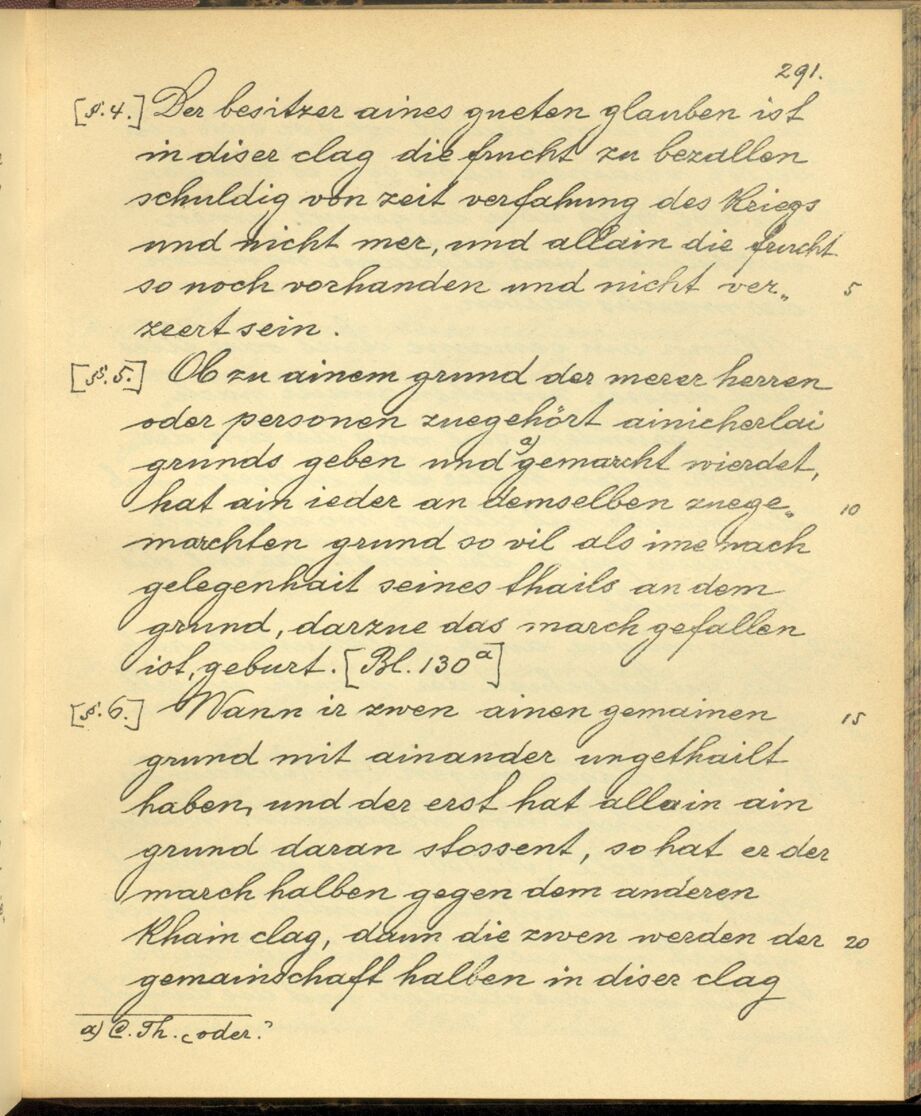 291.
[§.4.] Der besitzer aines gueten glauben ist
in diser clag die frucht zu bezallen
schuldig von zeit verfahung des kriegs
und nicht mer, und allain die frucht
so noch vorhanden und nicht ver„ 5
zeert sein.
[§.5.] Ob zu ainem grund der merer herren
oder personen zuegehört ainicherlai
grunds geben und a) gemarcht wierdet,
hat ain ieder an demselben zuege„ 10
marchten grund so vil als ime nach
gelegenhait seines thails an dem
grund, darzue das march gefallen
ist, geburt. [Bl. 130a]
[§.6.] Wann ir zwen ainen gemainen 15
grund mit ainander ungethailt
haben, und der erst hat allain ain
grund daran stossent, so hat er der
march halben gegen dem anderen
khain clag, dann die zwen werden der 20
gemainschaft halben in diser clag
a) C. Th. „oder“